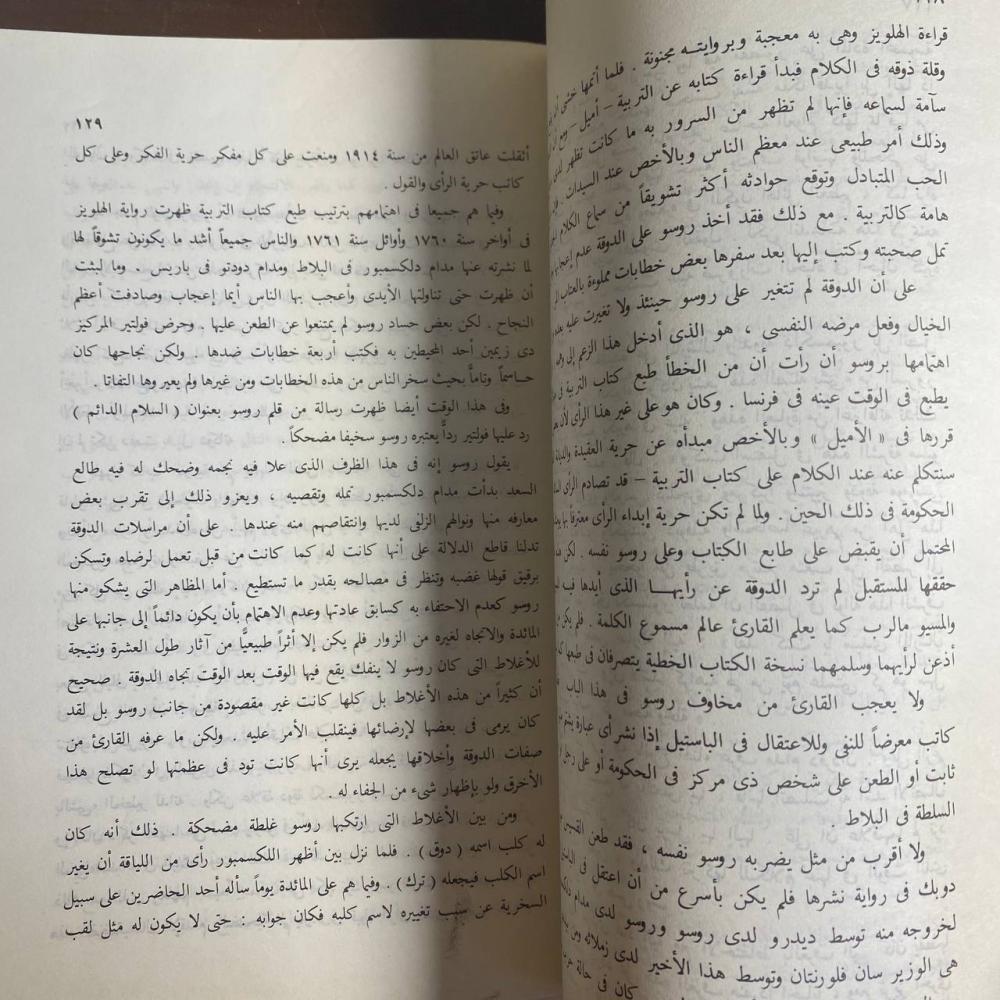 ١٢٨
قراءة الهلويز وهى به معجبة وبروايتـه مجنونة . فلما أتمها خشى
وقلة ذوقه فى الكلام فبدأ قراءة كتابه عن التربية – أميل – ومع
سآمة لسماعه فإنها لم تظهر من السرور به ما كانت تظهر لدى
وذلك أمر طبيعى عند معظم الناس وبالأخص عند السيدات .
الحب المتبادل وتوقع حوادثه أكثر تشويقاً من سماع الكلام
هامة كالتربية . مع ذلك فقد أخذ روسو على الدوقة عدم
تمل صحبته وكتب إليها بعد سفرها بعض خطابات مملوءة بالعتاب
على أن الدوقة لم تتغير على روسو حينئذ ولا تغيرت عليه
الخيال وفعل مرضه النفسى ، هو الذى أدخل هذا الزعم إلى
اهتمامها بروسو أن رأت أن من الخطأ طبع كتاب التربية فى
يطبع فى الوقت عينه فى فرنسا . وكان هو على غير هذا الرأى لأن
قررها فى « الأميل » وبالأخص مبدأه عن حرية العقيدة والديانة
سنتكلم عنه عند الكلام على كتاب التربية – قد تصادم الرأى
الحكومة فى ذلك الحين . ولما لم تكن حرية إبداء الرأى معترفاً بها
المحتمل أن يقبض على طابع الكتاب وعلى روسو نفسه . لكن
حققها للمستقبل لم ترد الدوقة عن رأيهـا الذى أيدها فيه
والمسيو مالرب كما يعلم القارئ عالم مسموع الكلمة . فلم يكن
أذعن لرأيهما وسلمهما نسخة الكتاب الخطية يتصرفان فى طبعها
ولا يعجب القارئ من مخاوف روسو فى هذا الباب
كاتب معرضاً للنفى وللاعتقال فى الباستيل إذا نشر أى عبارة
ثابت أو الطعن على شخص ذى مركز فى الحكومة أو على رجل
السلطة فى البلاط .
ولا أقرب من مثل يضربه روسو نفسه ، فقد طعن القسيس
دوبك فى رواية نشرها فلم يكن بأسرع من أن اعتقل فى
لخروجه منه توسط ديدرو لدى روسو وروسو لدى مدام
هى الوزير سان فلورنتان وتوسط هذا الأخير لدى زملائه ومن
كان فى حالة
١٢٩
أثقلت عاتق العالم من سنة ١٩١٤ ومنعت على كل مفكر حرية الفكر وعلى كل
كاتب حرية الرأى والقول .
وفيما هم جميعا فى اهتمامهم بترتيب طبع كتاب التربية ظهرت رواية الهلويز
فى أواخر سنة ١٧٦٠ وأوائل سنة ١٧٦١ والناس جميعاً أشد ما يكونون تشوقاً لها
لما نشرته عنها مدام دلكسمبور فى البلاط ومدام دودتو فى باريس . وما لبثت
أن ظهرت حتى تناولتها الأيدى وأعجب بها الناس أيما إعجاب وصادفت أعظم
النجاح . لكن بعض حساد روسو لم يمتنعوا عن الطعن عليها . وحرض فولتير المركيز
دى زيمين أحد المحيطين به فكتب أربعة خطابات ضدها . ولكن نجاحها كان
حـاسماً وتاماً بحيث سخر الناس من هذه الخطابات ومن غيرها ولم يعير وها التفاتا .
وفى هذا الوقت أيضا ظهرت رسالة من قلم روسو بعنوان ( السلام الدائم )
رد عليها فولتير رداً يعتبره روسو سخيفا مضحكاً .
يقول روسو إنه فى هذا الظرف الذى علا فيه نجمه وضحك له فيه طالع
السعد بدأت مدام دلكسمبور تمله وتقصيه ، ويعزو ذلك إلى تقرب بعض
معارفه منها ونوالهم الزلفى لديها وانتقاصهم منه عندها . على أن مراسلات الدوقة
تدلنا قاطع الدلالة على أنها كانت له كما كانت من قبل تعمل لرضاه وتسكن
برقيق قولها غضبه وتنظر فى مصالحه بقدر ما تستطيع . أما المظاهر التى يشكو منها
روسو كعدم الاحتفاء به كسابق عادتها وعدم الاهتمام بأن يكون دائماً إلى جانبها على
المائدة والاتجاه لغيره من الزوار فلم يكن إلا أثراً طبيعيًّا من آثار طول العشرة ونتيجة
للأغلاط التى كان روسو لا ينفك يقع فيها الوقت بعد الوقت تجاه الدوقة . صحيح
أن كثيراً من هذه الأغلاط بل كلها كانت غير مقصودة من جانب روسو بل لقد
كان يرمى فى بعضها لإرضائها فينقلب الأمر عليه . ولكن ما عرفه القارئ من
صفات الدوقة وأخلاقها يجعله يرى أنها كانت تود فى عظمتها لو تصلح هذا
الأخرق ولو بإظهار شىء من الجفاء له .
ومن بين الأغلاط التى ارتكبها روسو غلطة مضحكة . ذلك أنه كان
له كلب اسمه ( دوق ) . فلما نزل بين أظهر اللكسمبور رأى من اللياقة أن يغير
اسم الكلب فيجعله ( ترك ) . وفيما هم على المائدة يوماً سأله أحد الحاضرين على سبيل
السخرية عن سبب تغييره لاسم كلبه فكان جوابه : حتى لا يكون له مثل لقب